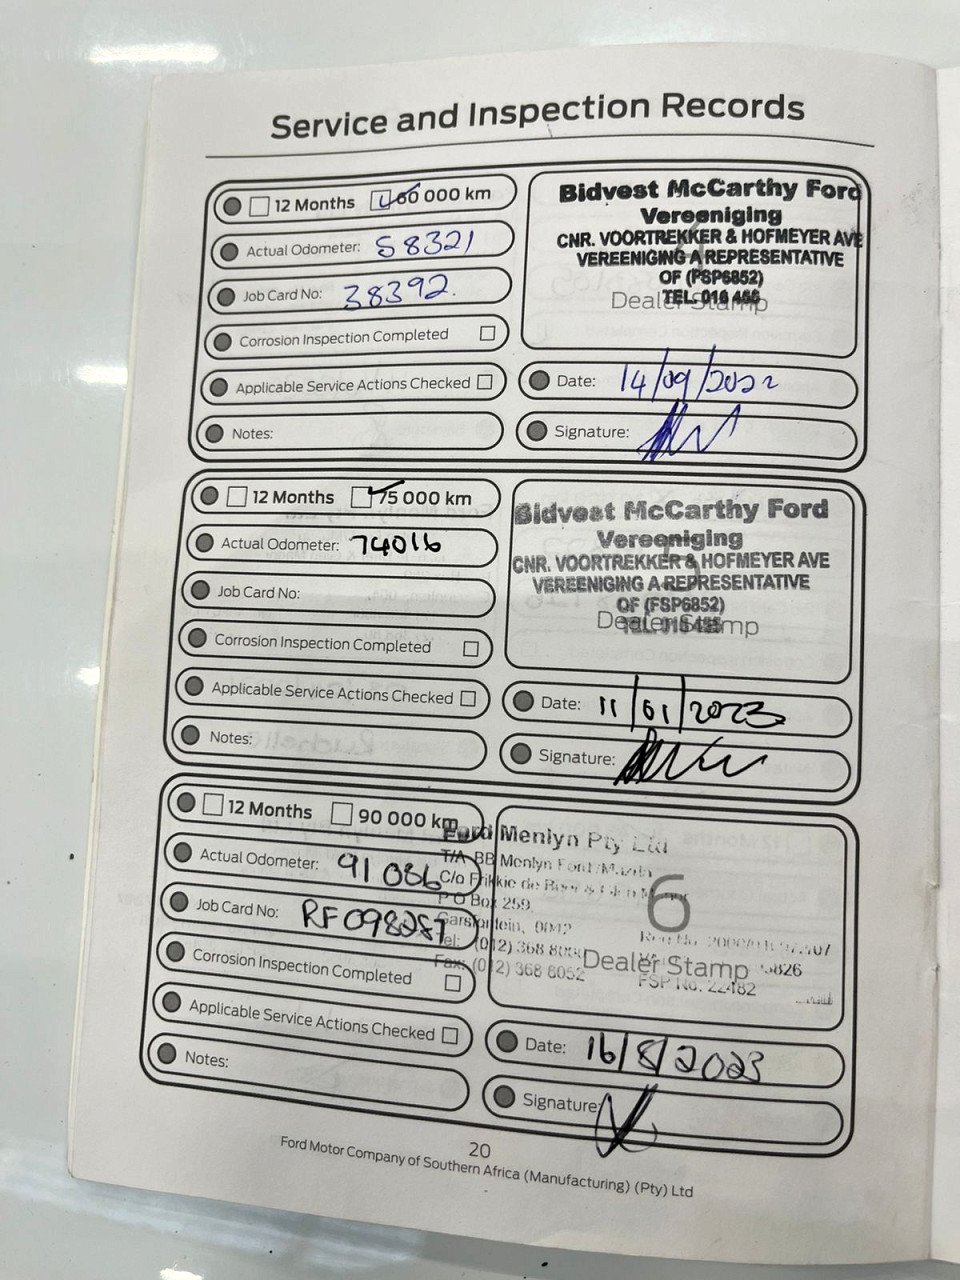 Service and Inspection Records
12 Months 60 000 km
Actual Odometer: 58321
Job Card No: 38392.
Corrosion Inspection Completed
Applicable Service Actions Checked
Notes:
Bidvest McCarthy Ford
Vereeniging
CNR. VOORTREKKER & HOFMEYER AVE
VEREENIGING A REPRESENTATIVE
OF (FSP6852)
TEL: 016 455
Dealer Stamp
Date: 14/09/2022
Signature:
12 Months 75 000 km
Actual Odometer: 74016
Job Card No:
Corrosion Inspection Completed
Applicable Service Actions Checked
Notes:
Bidvest McCarthy Ford
Vereeniging
CNR. VOORTREKKER & HOFMEYER AVE
VEREENIGING A REPRESENTATIVE
OF (FSP6852)
Dealer Stamp
Date: 11/01/2023
Signature:
12 Months 90 000 km
Actual Odometer: 91086
Job Card No:
Corrosion Inspection Completed
Applicable Service Actions Checked
Notes:
Ford Menlyn Pty Ltd
T/A BB Menlyn Ford/Mazda
C/o Frikkie de Beer &
P O Box 259,
Garsfontein, 0042
Tel: (012) 368
Fax: (012) 368 8052
6
Dealer Stamp
FSP No. 22482
Date: 16/8/2023
Signature:
20
Ford Motor Company of Southern Africa (Manufacturing) (Pty) Ltd